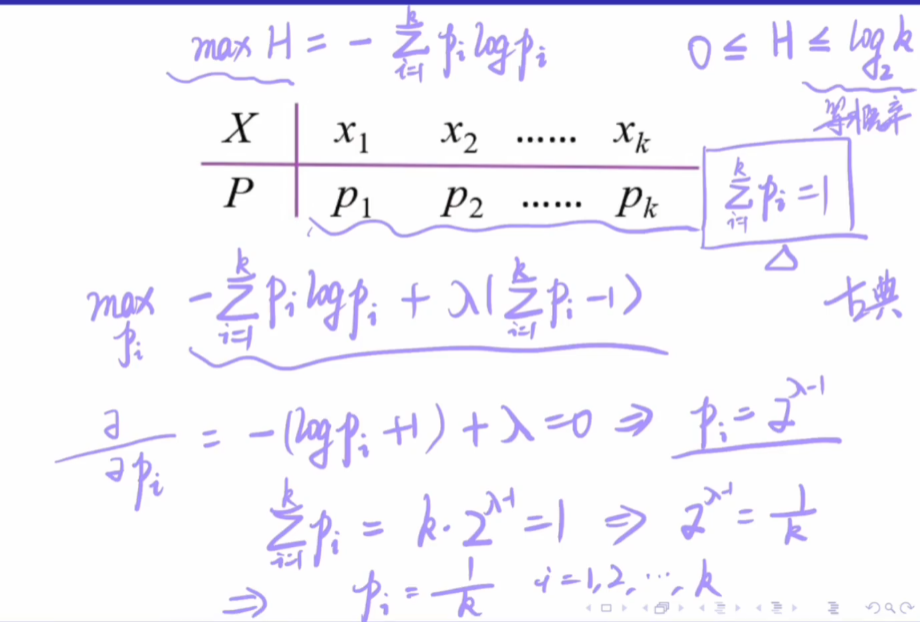 max H = - ∑_{i=1}^{k} p_i log p_i    0 ≤ H ≤ log_2 k
等概率
X | x_1 x_2 …… x_k
P | p_1 p_2 …… p_k    ∑_{i=1}^{k} p_i = 1
max_{p_i} - ∑_{i=1}^{k} p_i log p_i + λ(∑_{i=1}^{k} p_i - 1)    古典
∂/∂p_i = -(log p_i + 1) + λ = 0 ⇒ p_i = 2^{λ-1}
∑_{i=1}^{k} p_i = k · 2^{λ-1} = 1 ⇒ 2^{λ-1} = 1/k
⇒ p_i = 1/k    i = 1, 2, ⋯, k